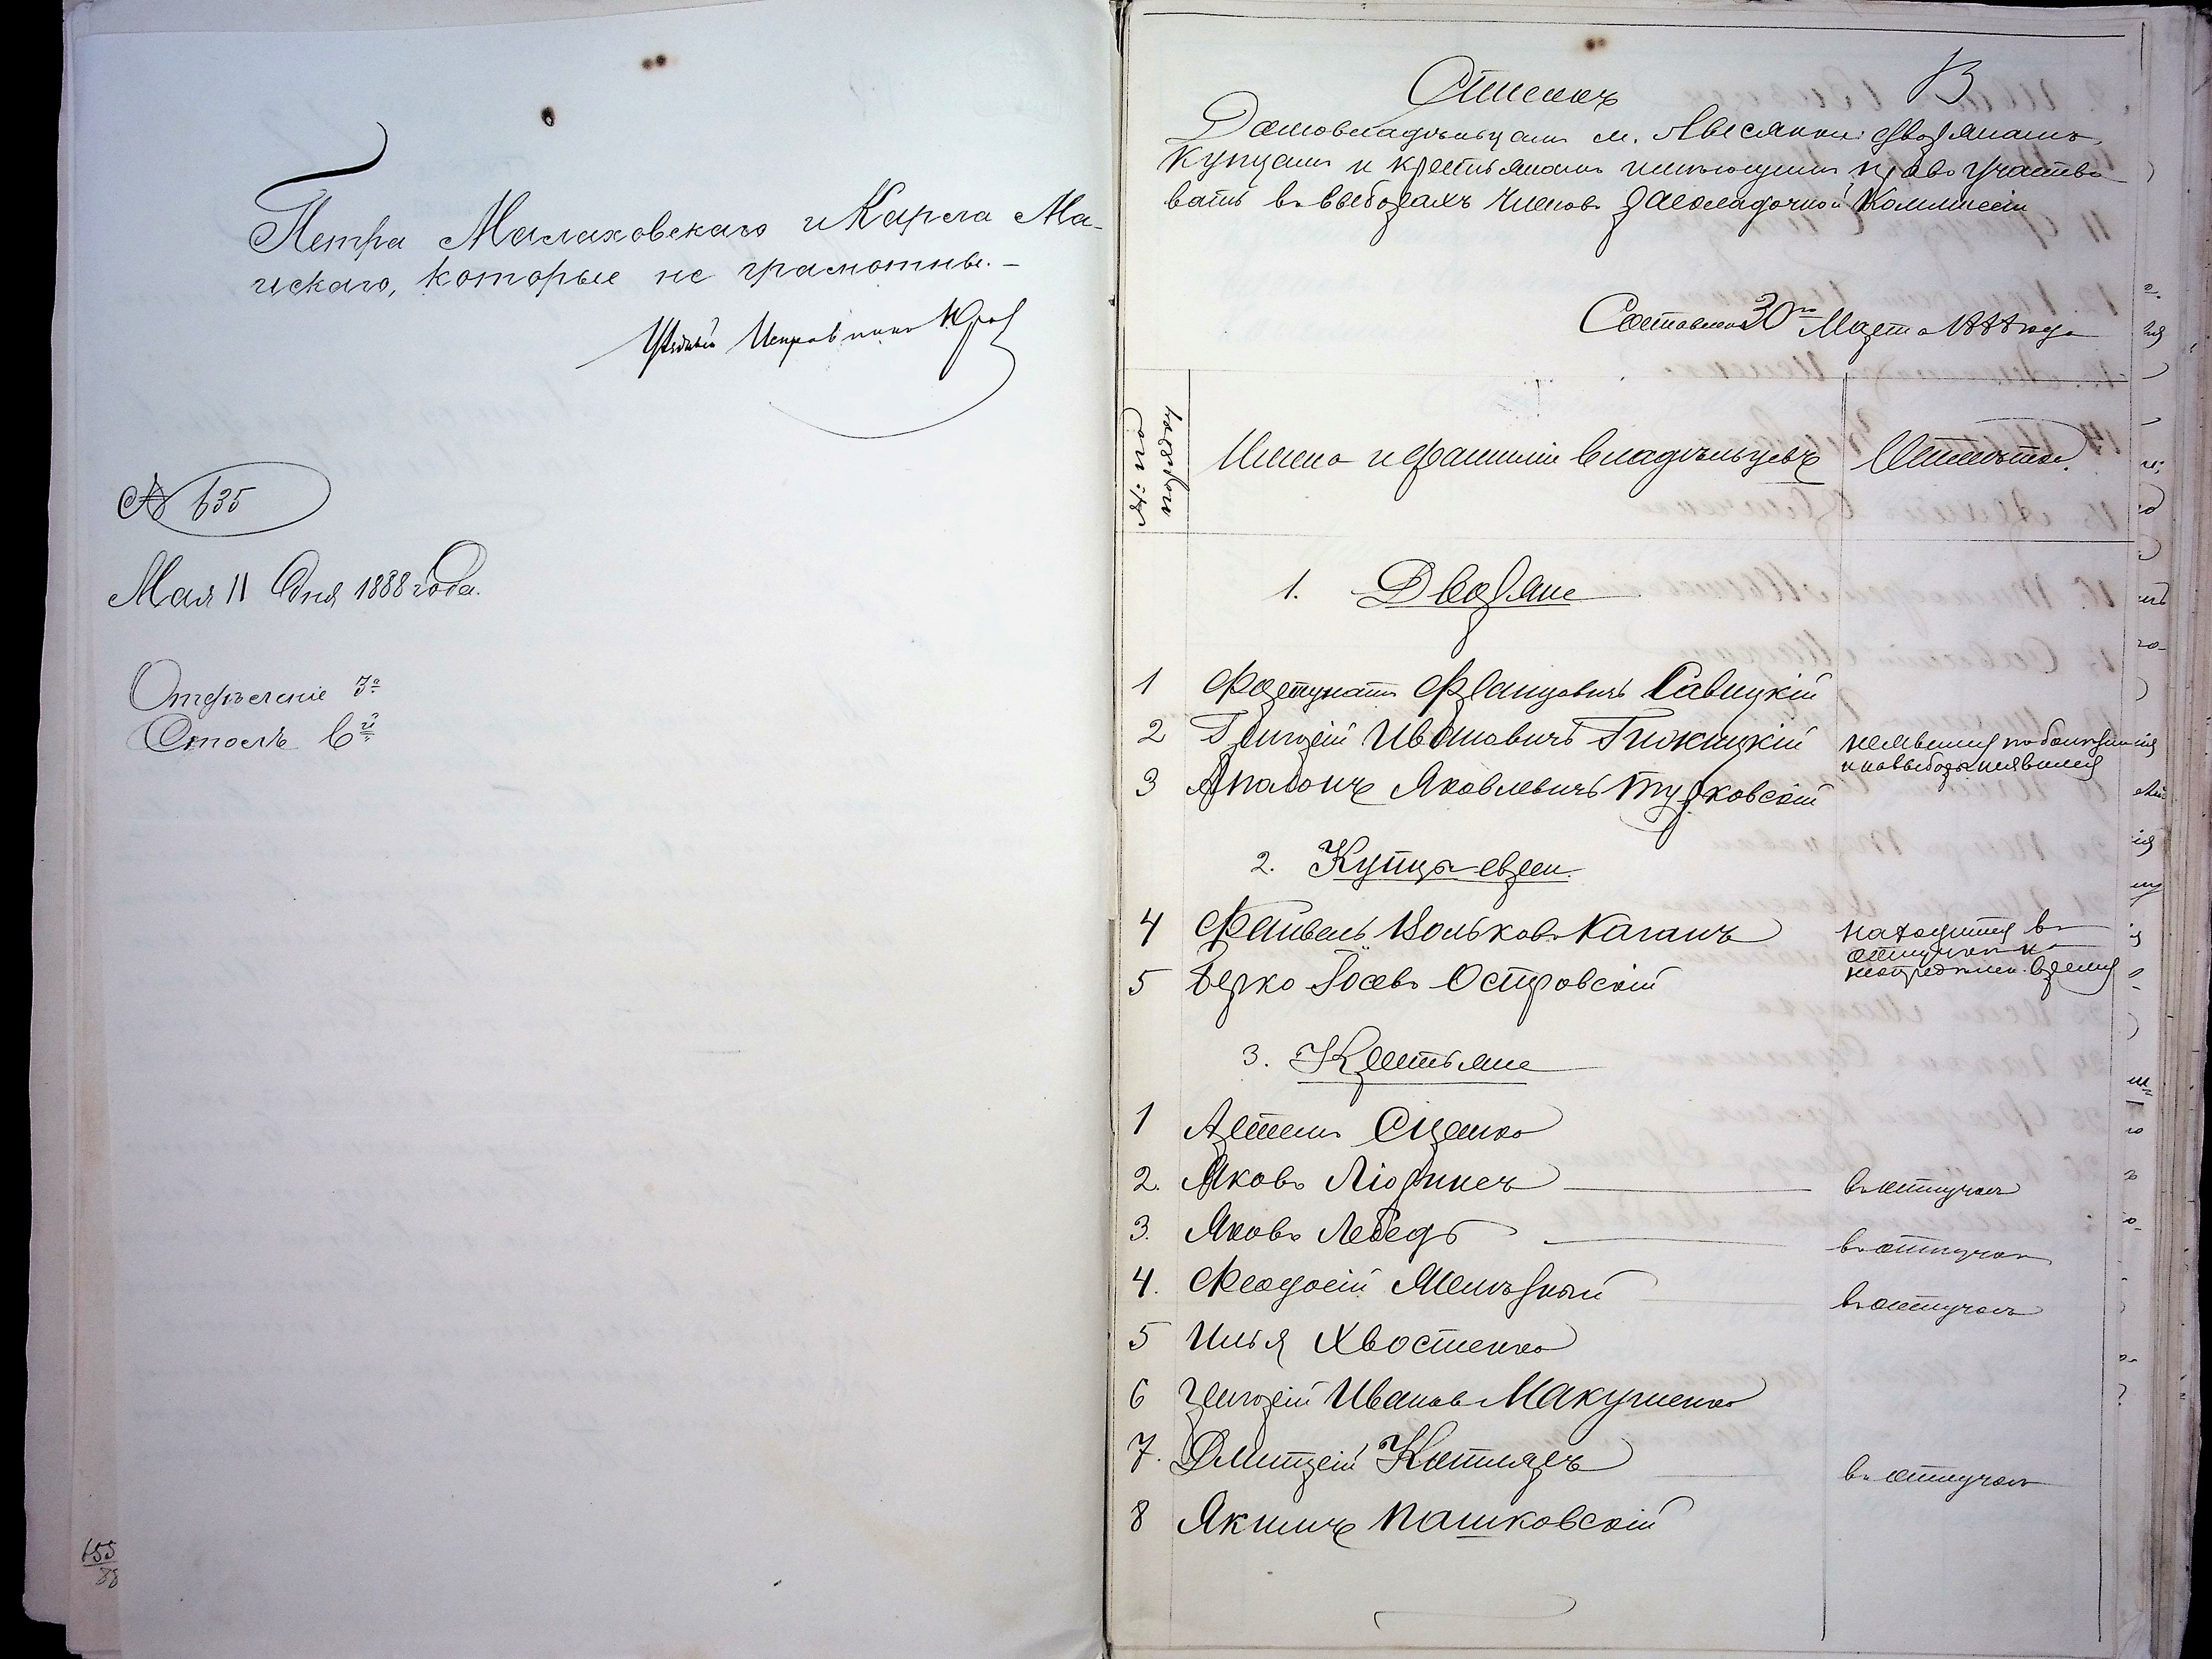 Петра Малаховскаго и Карла Ма-
лискаго, которые не грамотны.
Уѣздный Исправникъ
№ 635
Мая 11 дня 1888 года.
Отдѣленіе 3е
Столъ 6й
155
88
13
Списокъ
Домовладѣльцамъ м. Лысянки: дворянамъ
купцамъ и крестьянамъ имѣющимъ право участво
вать въ выборахъ членовъ раскладочной Коммиссіи
Составленъ 30го Марта 1888 года
№№ по
порядку
Имена и фамиліи владѣльцевъ
Отмѣтка.
1. Дворяне
1 Фортунатъ Францовичъ Савицкій
2 Григорій Ивановичъ Гижицкій
неявился по болѣзни
и на выборы неявился
3 Аполонъ Яковлевичъ Турковскій
2. Купцы евреи.
4 Файвель Вольковъ Каганъ
находится въ
отлучкѣ
неопредѣлен. время
5 Берко Іосевъ Островскій
3. Крестьяне
1 Артемъ Сиренко
2. Яковъ Люринецъ
въ отлучкѣ
3. Яковъ Лебедь
въ отлучкѣ
4. Феодосій
въ отлучкѣ
5 Илья Хвостенко
6 Григорій Ивановъ Макушенко
7. Дмитрій Котляръ
въ отлучкѣ
8 Якимъ Пашковскій